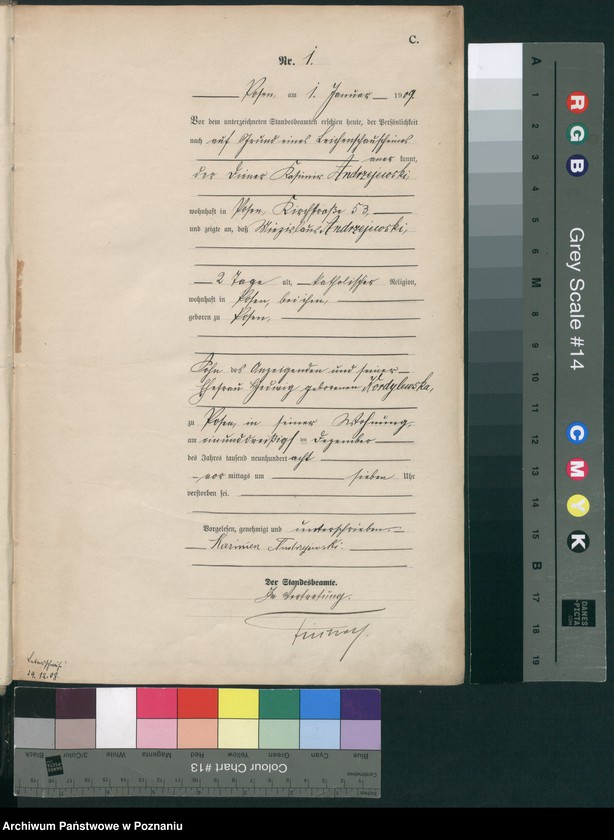 C.
Nr. 1.
Posen, am 1. Januar 1909.
Vor dem unterzeichneten Standesbeamten erschien heute, der Persönlichkeit
nach auf Grund eines Leichenschauscheines
aner kannt,
der Diener Kasimir Andrzejewski
wohnhaft in Posen, Kirchstraße 53,
und zeigte an, daß Miezislaus Andrzejewski,
2 Tage alt, katholischer Religion,
wohnhaft in Posen, bei ihm,
geboren zu Posen,
Sohn des Anzeigenden und seiner
Ehefrau Hedwig geborenen Kordylewska,
zu Posen, in seiner Wohnung,
am einunddreißigsten Dezember
des Jahres tausend neunhundert acht
vor mittags um sieben Uhr
verstorben sei.
Vorgelesen, genehmigt und unterschrieben
Kazimierz Andrzejewski.
Der Standesbeamte.
In Vertretung.
29.12.08
A 1 2 3 4 5 6 M 8 9 10 11 12 13 14 15 B 17 18 19
R G B
Grey Scale #14
C M Y K
DANES PICTA
Black 3/Color White Magenta Red Yellow Green Cyan Blue
Colour Chart #13
Archiwum Państwowe w Poznaniu